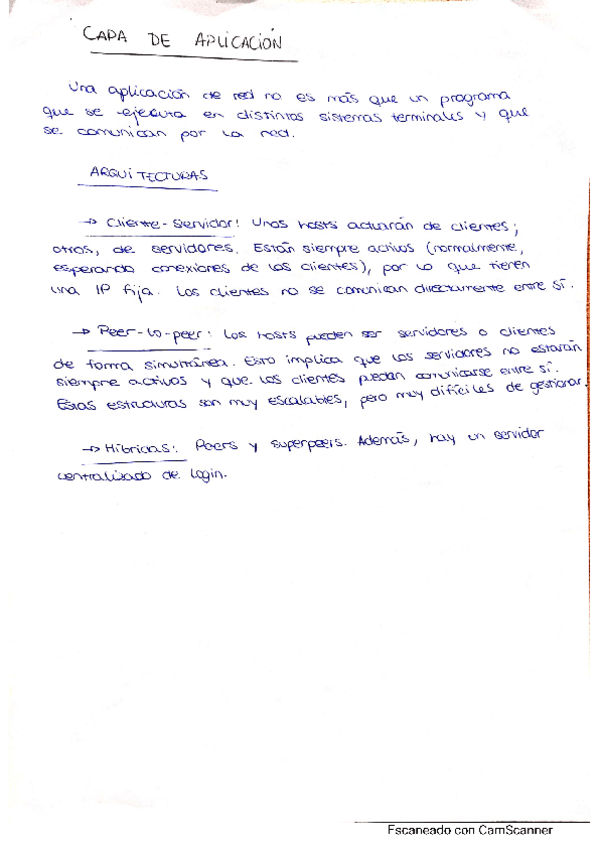 CAPA DE APLICACIÓN
Una aplicación de red no es más que un programa
que se ejecuta en distintos sistemas terminales y que
se comunican por la red.
ARQUITECTURAS
→ Cliente-servidor: Unos hosts actuarán de clientes;
otros, de servidores. Están siempre activos (normalmente,
esperando conexiones de los clientes), por lo que tienen
una IP fija. Los clientes no se comunican directamente entre sí.
→ Peer-to-peer: Los hosts pueden ser servidores o clientes
de forma simultánea. Esto implica que los servidores no estarán
siempre activos y que los clientes puedan comunicarse entre sí.
Estas estructuras son muy escalables, pero muy difíciles de gestionar.
→ Híbridas: Peers y superpeers. Además, hay un servidor
centralizado de login.
Escaneado con CamScanner